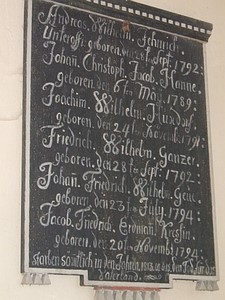 Andreas, Wilhelm,
Unteroff. geboren, 1792:
Johañ, Christoph, Jacob, Hanne,
geboren, den 6ten May, 1789:
Joachim, Wilhelm,
geboren, den 24ten Novemb,
Friedrich, Wilhelm, Ganzer,
geboren, den 28ten Sept. 1792:
Johañ, Friedrich, Wilhelm,
geboren, den 23ten July, 1794:
Jacob, Friedrich, Erdman, Kressin,
geboren, den 20ten Novembr 1794:
starben sämtlich in den Jahren, 1813
Vaterland